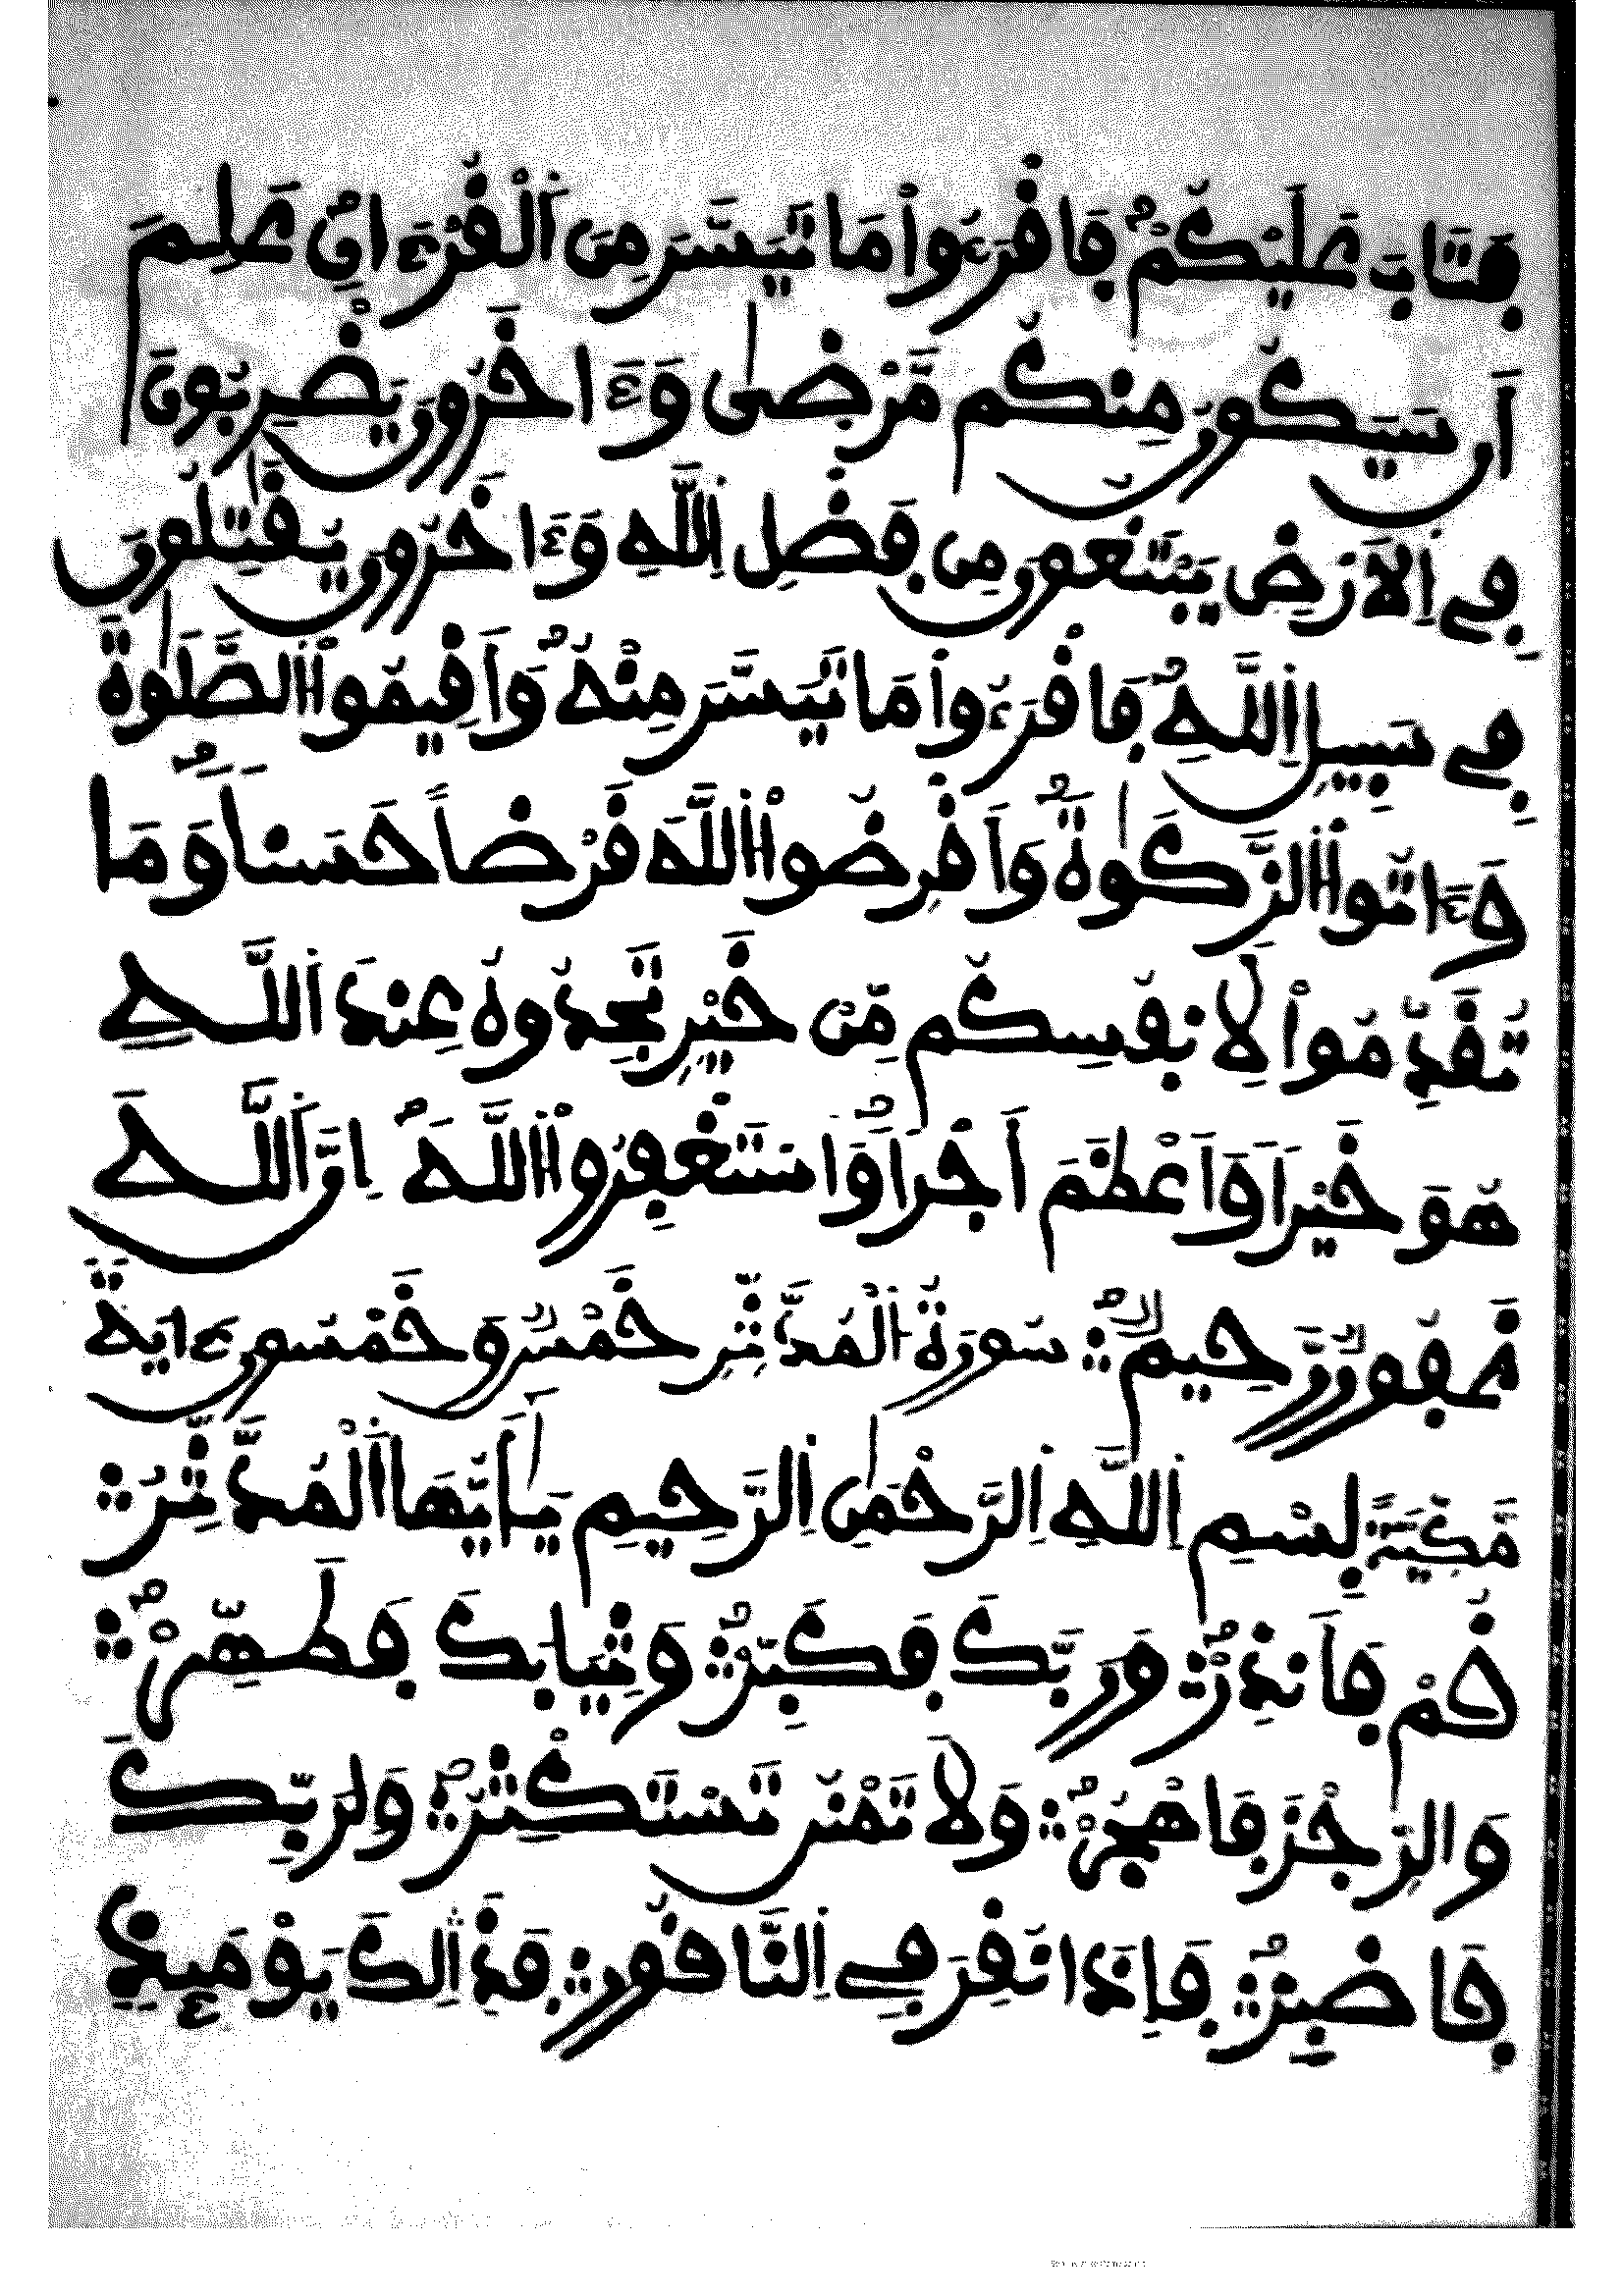 فَتَابَ عَلَيْكُمْ فَاقْرَءُواْ مَا تَيَسَّرَ مِنَ اَلْقُرْءَانِ عَلِمَ
أَن سَيَكُونُ مِنكُم مَّرْضٜىٰ وَءَاخَرُونَ يَضْرِبُونَ
فِے اِلَارْضِ يَبْتَغُونَ مِن فَضْلِ اِللَّهِ وَءَاخَرُونَ يُقَٰتِلُونَ
فِے سَبِيلِ اِللَّهِ فَاقْرَءُواْ مَا تَيَسَّرَ مِنْهُ وَأَقِيمُواْ اُلصَّلَوٰةَ
وَءَاتُواْ اُلزَّكَوٰةَ وَأَقْرِضُواْ اُللَّهَ قَرْضاً حَسَناً وَمَا
تُقَدِّمُواْ لِأَنفُسِكُم مِّنْ خَيْرٍ تَجِدُوهُ عِندَ اَللَّهِ
هُوَ خَيْراً وَأَعْظَمَ أَجْراً وَاسْتَغْفِرُواْ اُللَّهَ إِنَّ اَللَّهَ
غَفُورٌ رَّحِيمٌ سُورَةُ اُلْمُدَّثِّرِ خَمْسٌ وَخَمْسُونَ ءَايَةً
مَّكِّيَّةً بِسْمِ اِللَّهِ اِلرَّحْمَٰنِ اِلرَّحِيمِ يَٰأَيُّهَا اَلْمُدَّثِّرُ
قُمْ فَأَنذِرْ وَرَبَّكَ فَكَبِّرْ وَثِيَابَكَ فَطَهِّرْ
وَالرِّجْزَ فَاهْجُرْ وَلَا تَمْنُن تَسْتَكْثِرُ وَلِرَبِّكَ
فَاصْبِرْ فَإِذَا نُقِرَ فِے اِلنَّاقُورِ فَذَٰلِكَ يَوْمَئِذٍ